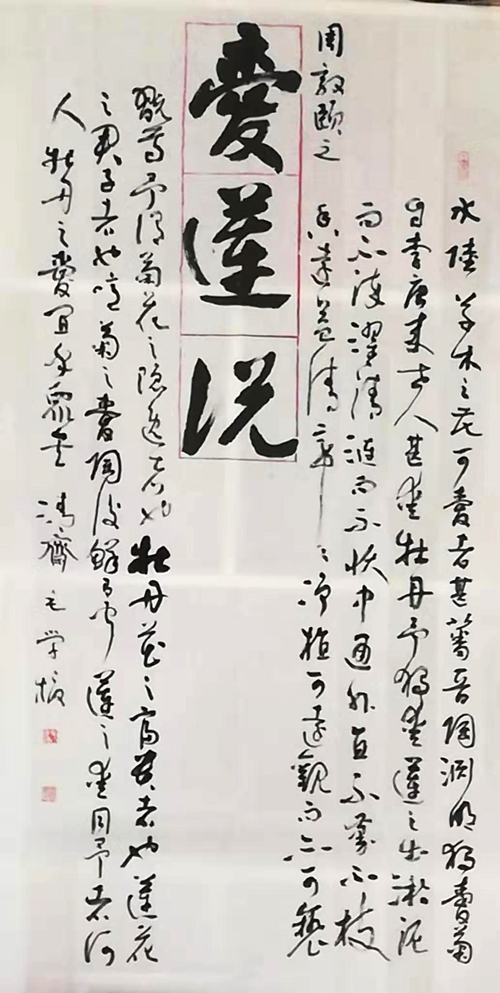 周敦颐之
愛蓮说
水陸草木之花可愛者甚蕃晉陶渊明独愛菊
自李唐来世人甚爱牡丹予独爱蓮之出淤泥
而不染濯清漣而不妖中通外直不蔓不枝
香遠益清亭〻净植可遠觀而不可褻
翫焉予谓菊花之隐逸者也牡丹花之富贵者也蓮花
之君子者也噫菊之愛陶後鲜有闻蓮之爱同予者何
人牡丹之愛宜乎眾矣 清齋 毛学